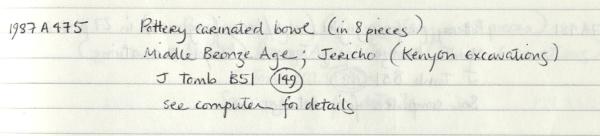 1987A475 Pottery carinated bowl (in 8 pieces)
Middle Bronze Age; Jericho (Kenyon excavations)
J Tomb B51 149
see computer for details